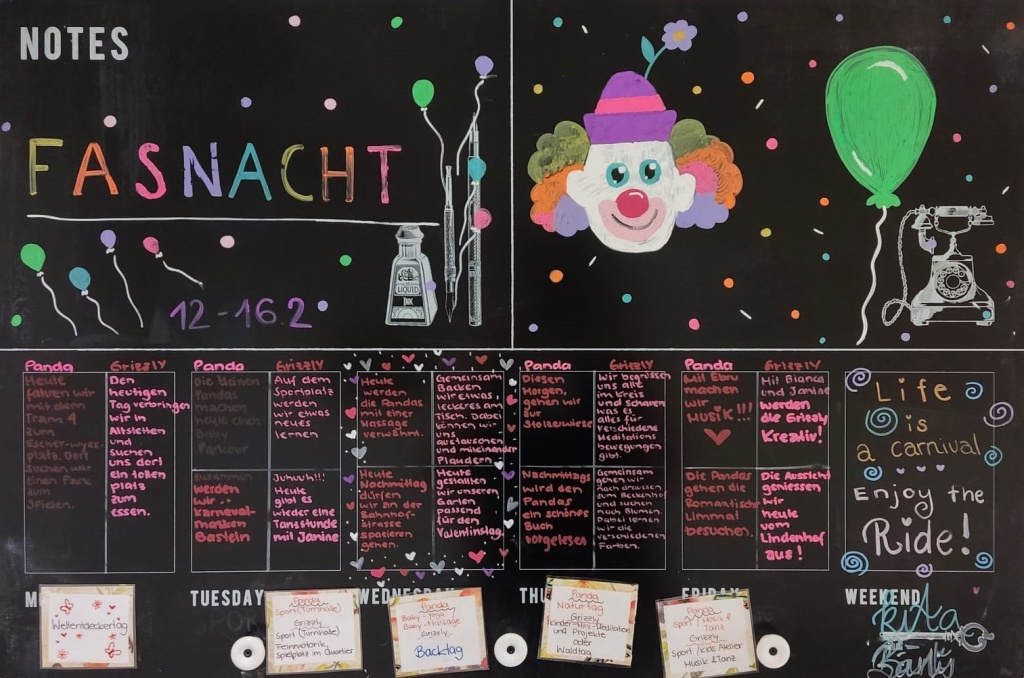 NOTES
FASNACHT
12-16.2
LIQUID
INK
Panda
Grizzly
Heute
fahren wir
mit dem
Tram 4
zum
Escher-wyss-
platz. Dort
suchen wir
einen Park
zum
Spielen.
Den
heutigen
Tag verbringen
wir in
Altstetten
und
suchen
uns dort
ein tollen
platz
zum
essen.
Panda
Grizzly
Die kleinen
Pandas
machen
heute einen
Baby
Parcour
Auf dem
Sportplatz
werden
wir etwas
neues
lernen
Zusammen
werden
wir
karneval-
masken
Basteln
Juhuh!!!
Heute
gibt es
wieder eine
Tanzstunde
mit Janine
Heute
werden
die Pandas
mit einer
Massage
verwöhnt.
Gemeinsam
Backen
wir etwas
leckeres am
Tisch. Dabei
können wir
uns
austauschen
und miteinander
Plaudern.
Heute
Nachmittag
dürfen
wir in der
Bahnhof-
strasse
spazieren
gehen.
Heute
gestallten
wir unseren
Garten
passend
für den
Valentinstag.
Panda
Grizzly
Diesen
Morgen
gehen wir
zur
Stolzewiese
wir begrüssen
uns alle
im Kreis
und schauen
was es
alles für
verschiedene
Meditations
bewegungen
gibt.
Nachmittags
wird den
Pandas
ein schönes
Buch
vorgelesen
Gemeinsam
gehen wir
nach draussen
zum Beckenhof
und suchen
nach Blumen.
Dabei lernen
wir die
verschiedenen
Farben.
Panda
Grizzly
Mit Ebru
machen
wir
MUSIK!!!
Mit Bianca
und Janine
werden
die Grizzly
Kreativ!
Die Pandas
gehen die
Romantische
Limmat
besuchen.
Die Aussicht
geniessen
wir
heute
vom
Lindenhof
aus!
Life
is
a carnival
Enjoy the
Ride!
TUESDAY
WEDNESDAY
FRIDAY
WEEKEND
Weltentdeckertag
Panda
Sport (Turnhalle)
Grizzly
Sport (Turnhalle)
Feinmotorik,
Spielplatz im Quartier
Panda
Baby-Yoga
Baby-Massage
Grizzly
Backtag
Panda
Naturtag
Grizzly
Kinder-Meditation
und Projekte
oder
Waldtag
Panda
Sport, Musik &
Tanz
Grizzly
Sport / Kids Atelier
Musik & Tanz
KiTa
Bärli